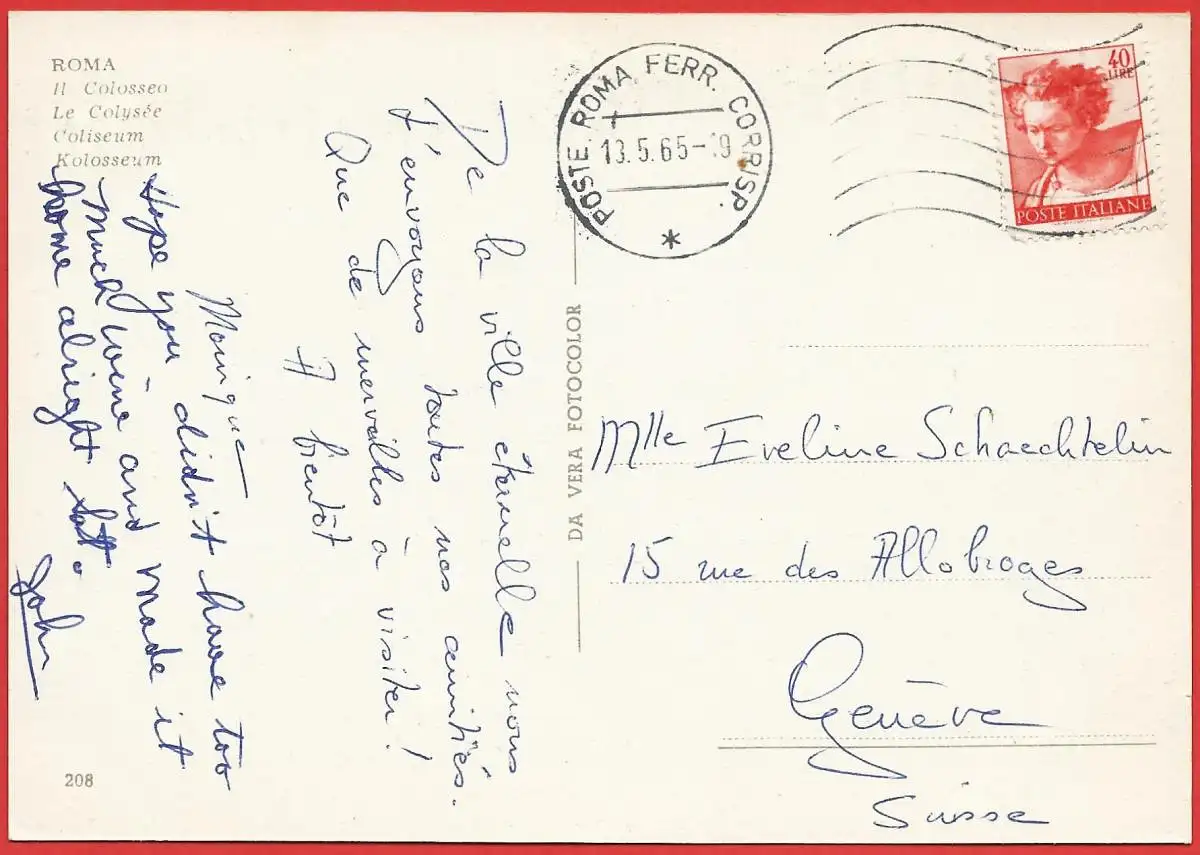 ROMA
Il Colosseo
Le Colysée
Coliseum
Kolosseum
De la ville éternelle nous
t'envoyons toutes nos amitiés.
Que de merveilles à visiter!
A bientôt
Monique
Hope you didn't have too
much wine and made it
home alright
John
208
DA VERA FOTOCOLOR
POSTE ROMA FERR. CORRISP.
13.5.65-19
*
40
LIRE
POSTE ITALIANE
Mlle Eveline Schaechtelin
15 rue des Allobroges
Genève
Suisse